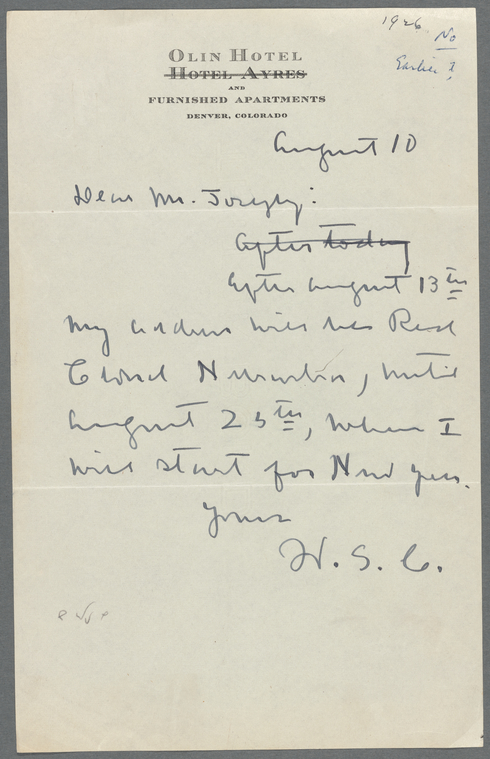 1926 No
Earlier?
OLIN HOTEL
HOTEL AYRES
AND
FURNISHED APARTMENTS
DENVER, COLORADO
August 10
Dear Mr.
After today
After August 13th
my address will be Red
Cloud Nebraska, until
August 25th, when I
will start for New York.
Yours
W. S. C.